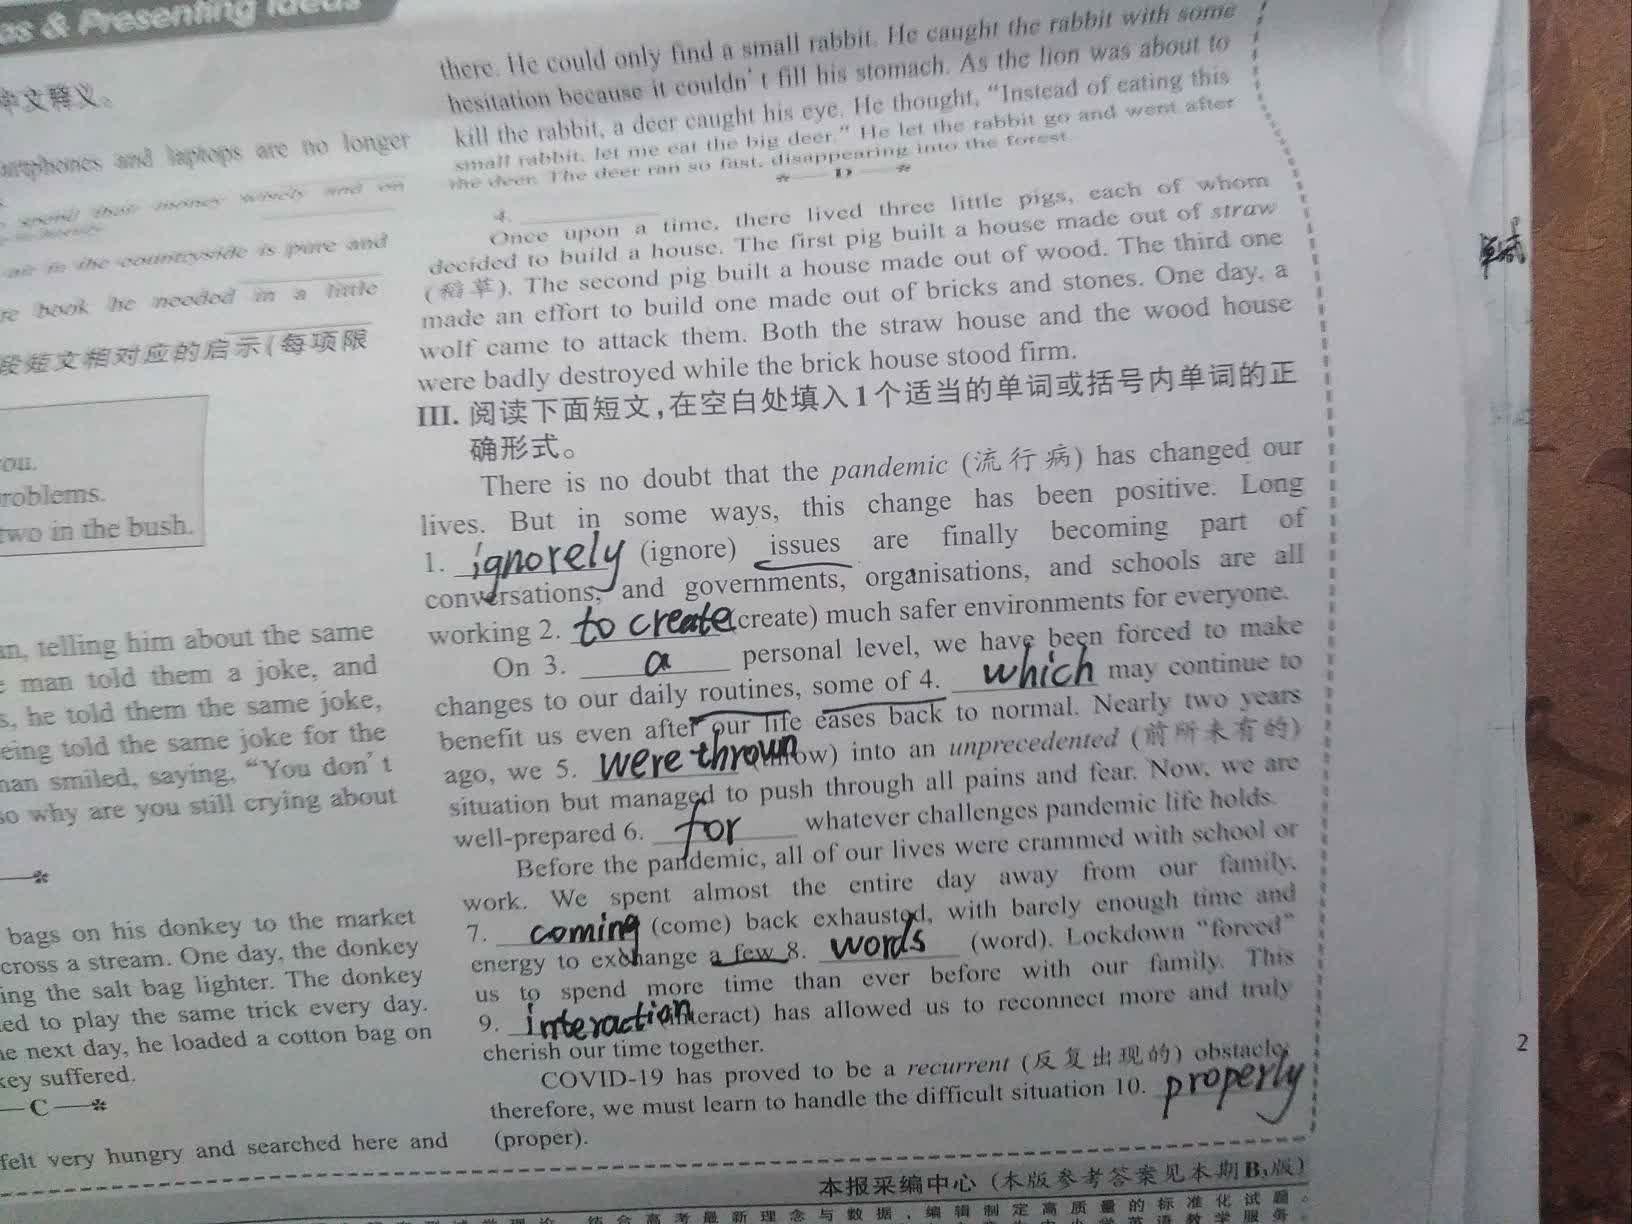 as & Presenting Ideas
中文释义。
artphones and laptops are no longer
spend their money wisely and on
air in the countryside is pure and
re book he needed in a little
段短文相对应的启示(每项限
ou.
roblems.
two in the bush.
an, telling him about the same
e man told them a joke, and
s, he told them the same joke,
eing told the same joke for the
man smiled, saying, “You don't
so why are you still crying about
bags on his donkey to the market
cross a stream. One day, the donkey
ing the salt bag lighter. The donkey
ed to play the same trick every day.
he next day, he loaded a cotton bag on
key suffered.
C
felt very hungry and searched here and
there. He could only find a small rabbit. He caught the rabbit with some
hesitation because it couldn't fill his stomach. As the lion was about to
kill the rabbit, a deer caught his eye. He thought, “Instead of eating this
small rabbit, let me eat the big deer.” He let the rabbit go and went after
the deer. The deer ran so fast, disappearing into the forest.
D
4.
Once upon a time, there lived three little pigs, each of whom
decided to build a house. The first pig built a house made out of straw
(稻草). The second pig built a house made out of wood. The third one
made an effort to build one made out of bricks and stones. One day, a
wolf came to attack them. Both the straw house and the wood house
were badly destroyed while the brick house stood firm.
III. 阅读下面短文,在空白处填入1个适当的单词或括号内单词的正
确形式。
There is no doubt that the pandemic (流行病) has changed our
lives. But in some ways, this change has been positive. Long
1. ignorely (ignore) issues are finally becoming part of
conversations, and governments, organisations, and schools are all
working 2. to create (create) much safer environments for everyone.
On 3. a personal level, we have been forced to make
changes to our daily routines, some of 4. which may continue to
benefit us even after our life eases back to normal. Nearly two years
ago, we 5. were thrown (throw) into an unprecedented (前所未有的)
situation but managed to push through all pains and fear. Now, we are
well-prepared 6. for whatever challenges pandemic life holds.
Before the pandemic, all of our lives were crammed with school or
work. We spent almost the entire day away from our family,
7. coming (come) back exhausted, with barely enough time and
energy to exchange a few 8. words (word). Lockdown “forced”
us to spend more time than ever before with our family. This
9. interaction (interact) has allowed us to reconnect more and truly
cherish our time together.
COVID-19 has proved to be a recurrent (反复出现的) obstacle;
therefore, we must learn to handle the difficult situation 10. properly
(proper).
本报采编中心 (本版参考答案见本期B3版)
结合高考最新理念与数据,编辑制定高质量的标准化试题。
2